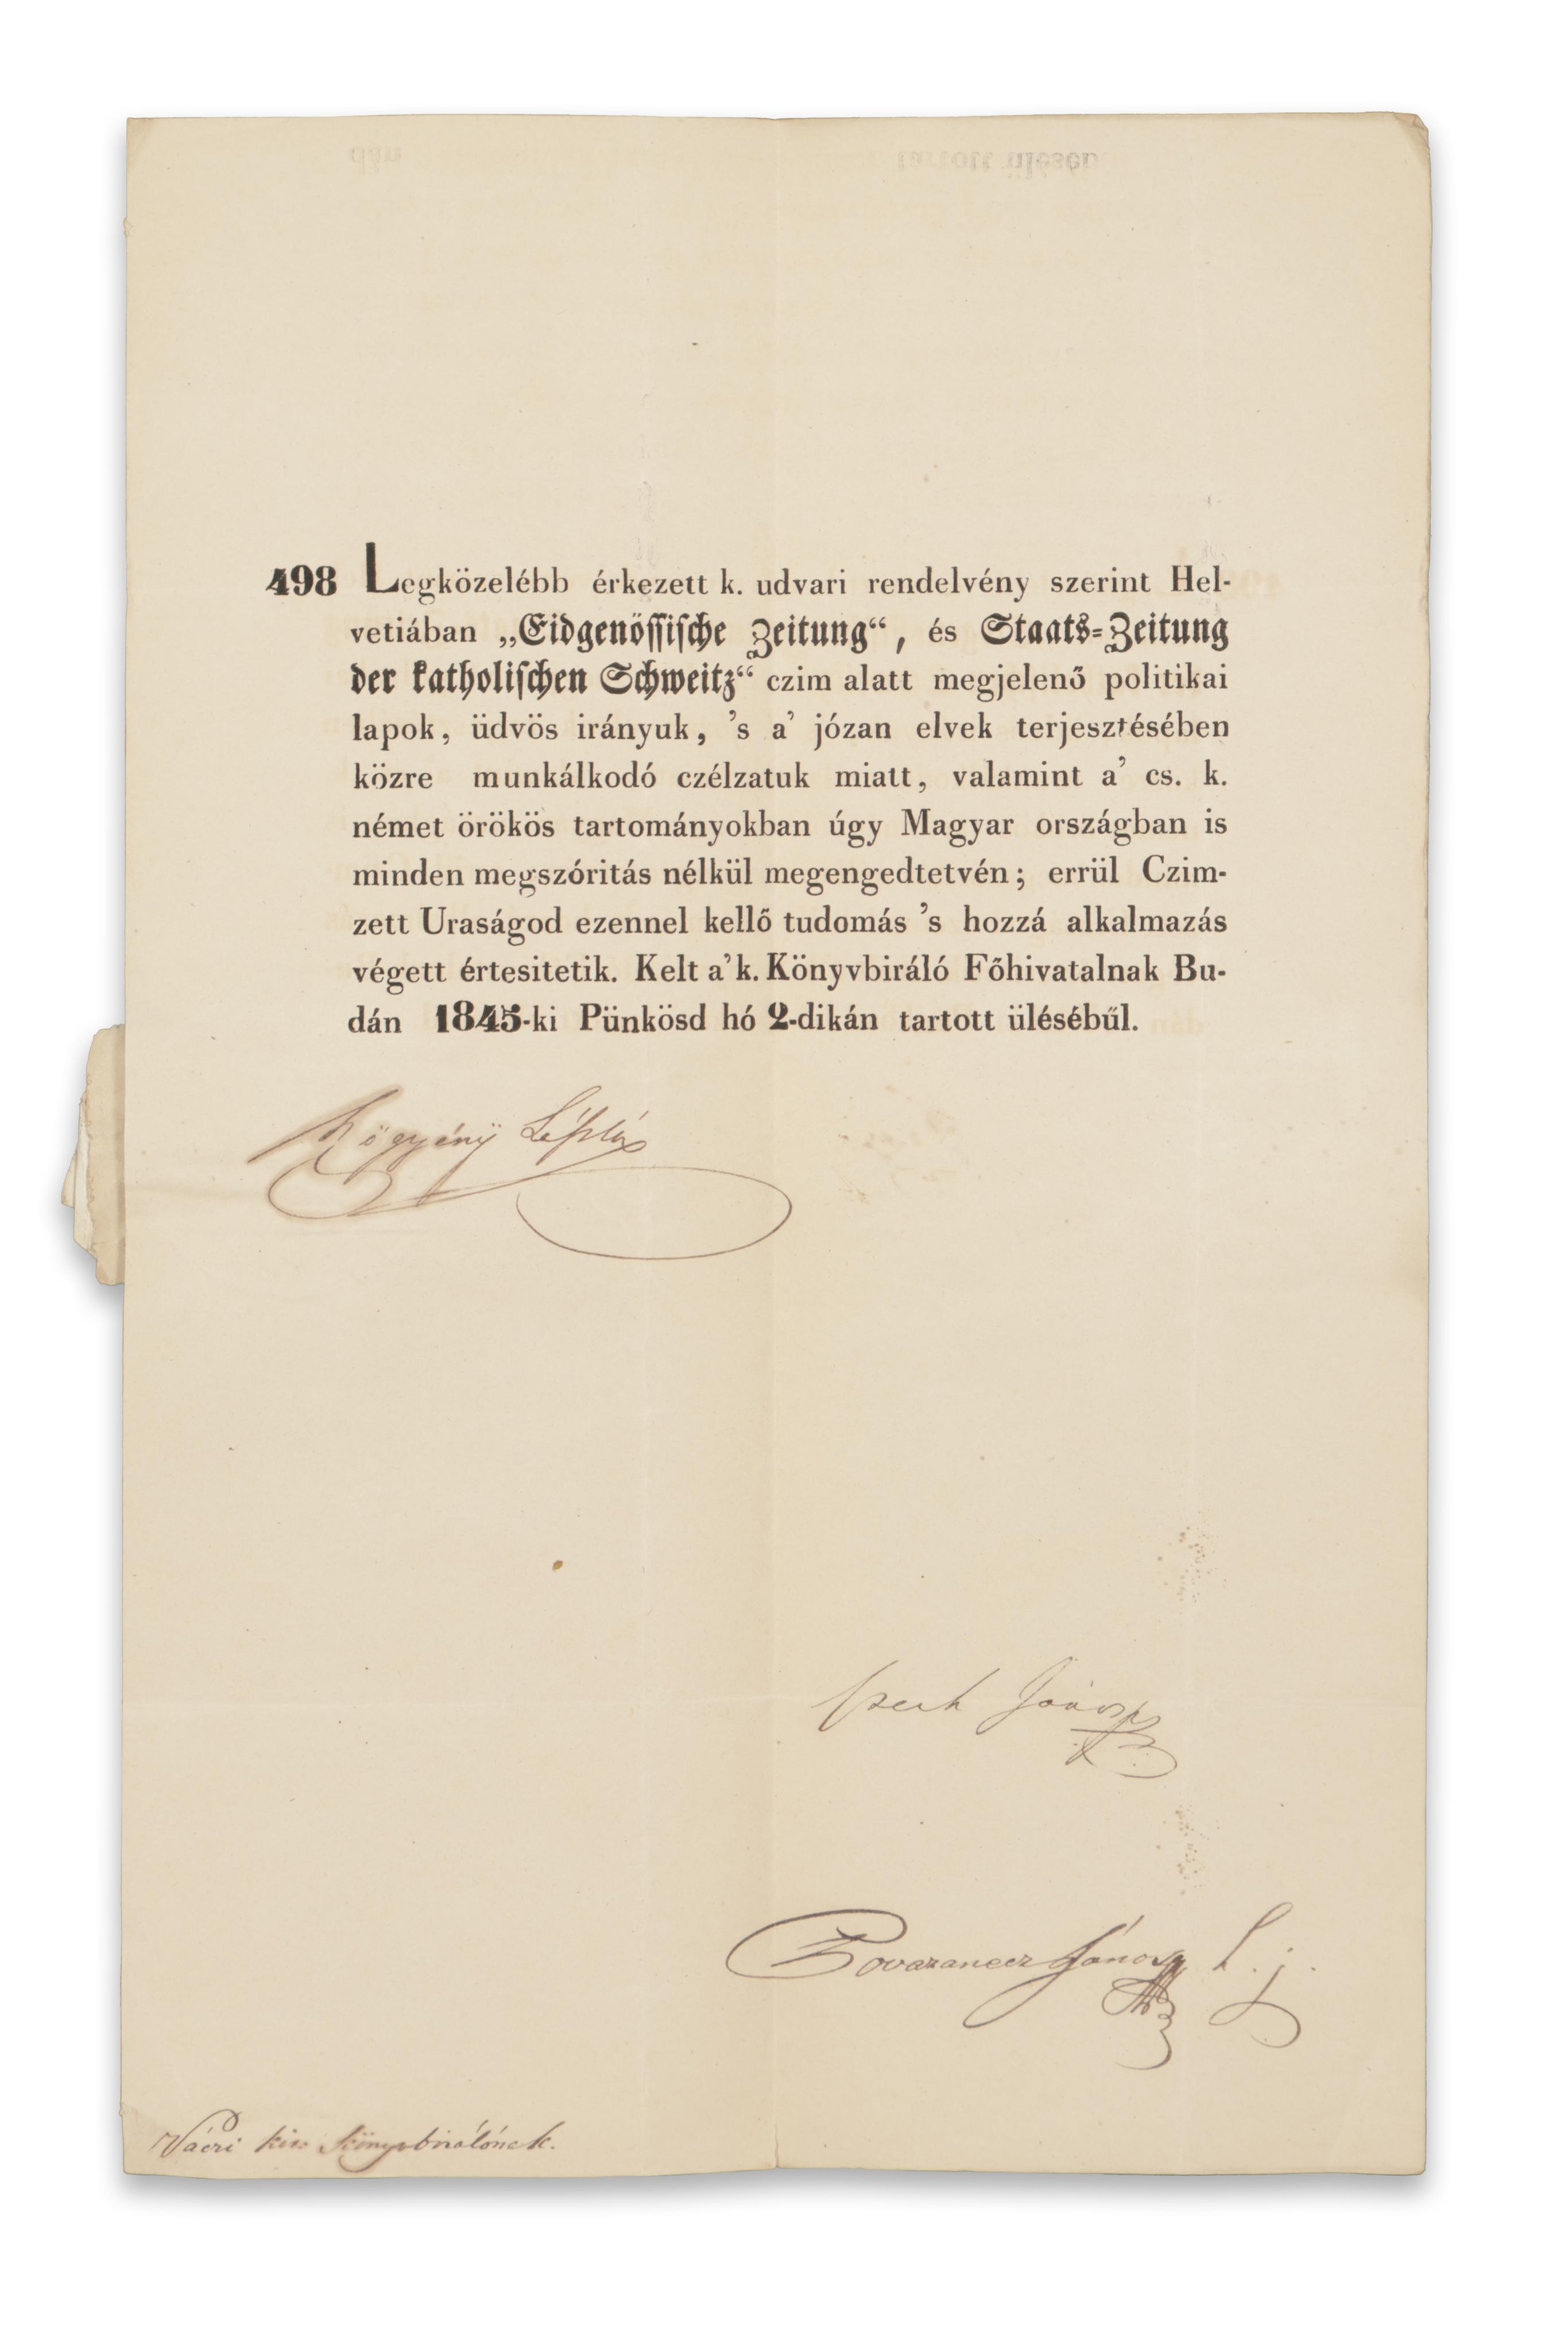 498 Legközelébb érkezett k. udvari rendelvény szerint Hel-
vetiában „Eidgenössische Zeitung“, és Staats-Zeitung
der katholischen Schweitz“ czim alatt megjelenő politikai
lapok, üdvös irányuk, 's a' józan elvek terjesztésében
közre munkálkodó czélzatuk miatt, valamint a' cs. k.
német örökös tartományokban úgy Magyar országban is
minden megszóritás nélkül megengedtetvén; errül Czim-
zett Uraságod ezennel kellő tudomás 's hozzá alkalmazás
végett értesitetik. Kelt a' k. Könyvbiráló Főhivatalnak Bu-
dán 1845-ki Pünkösd hó 2-dikán tartott üléséből.
János
János
Váczi kir. könyvbirálónak.